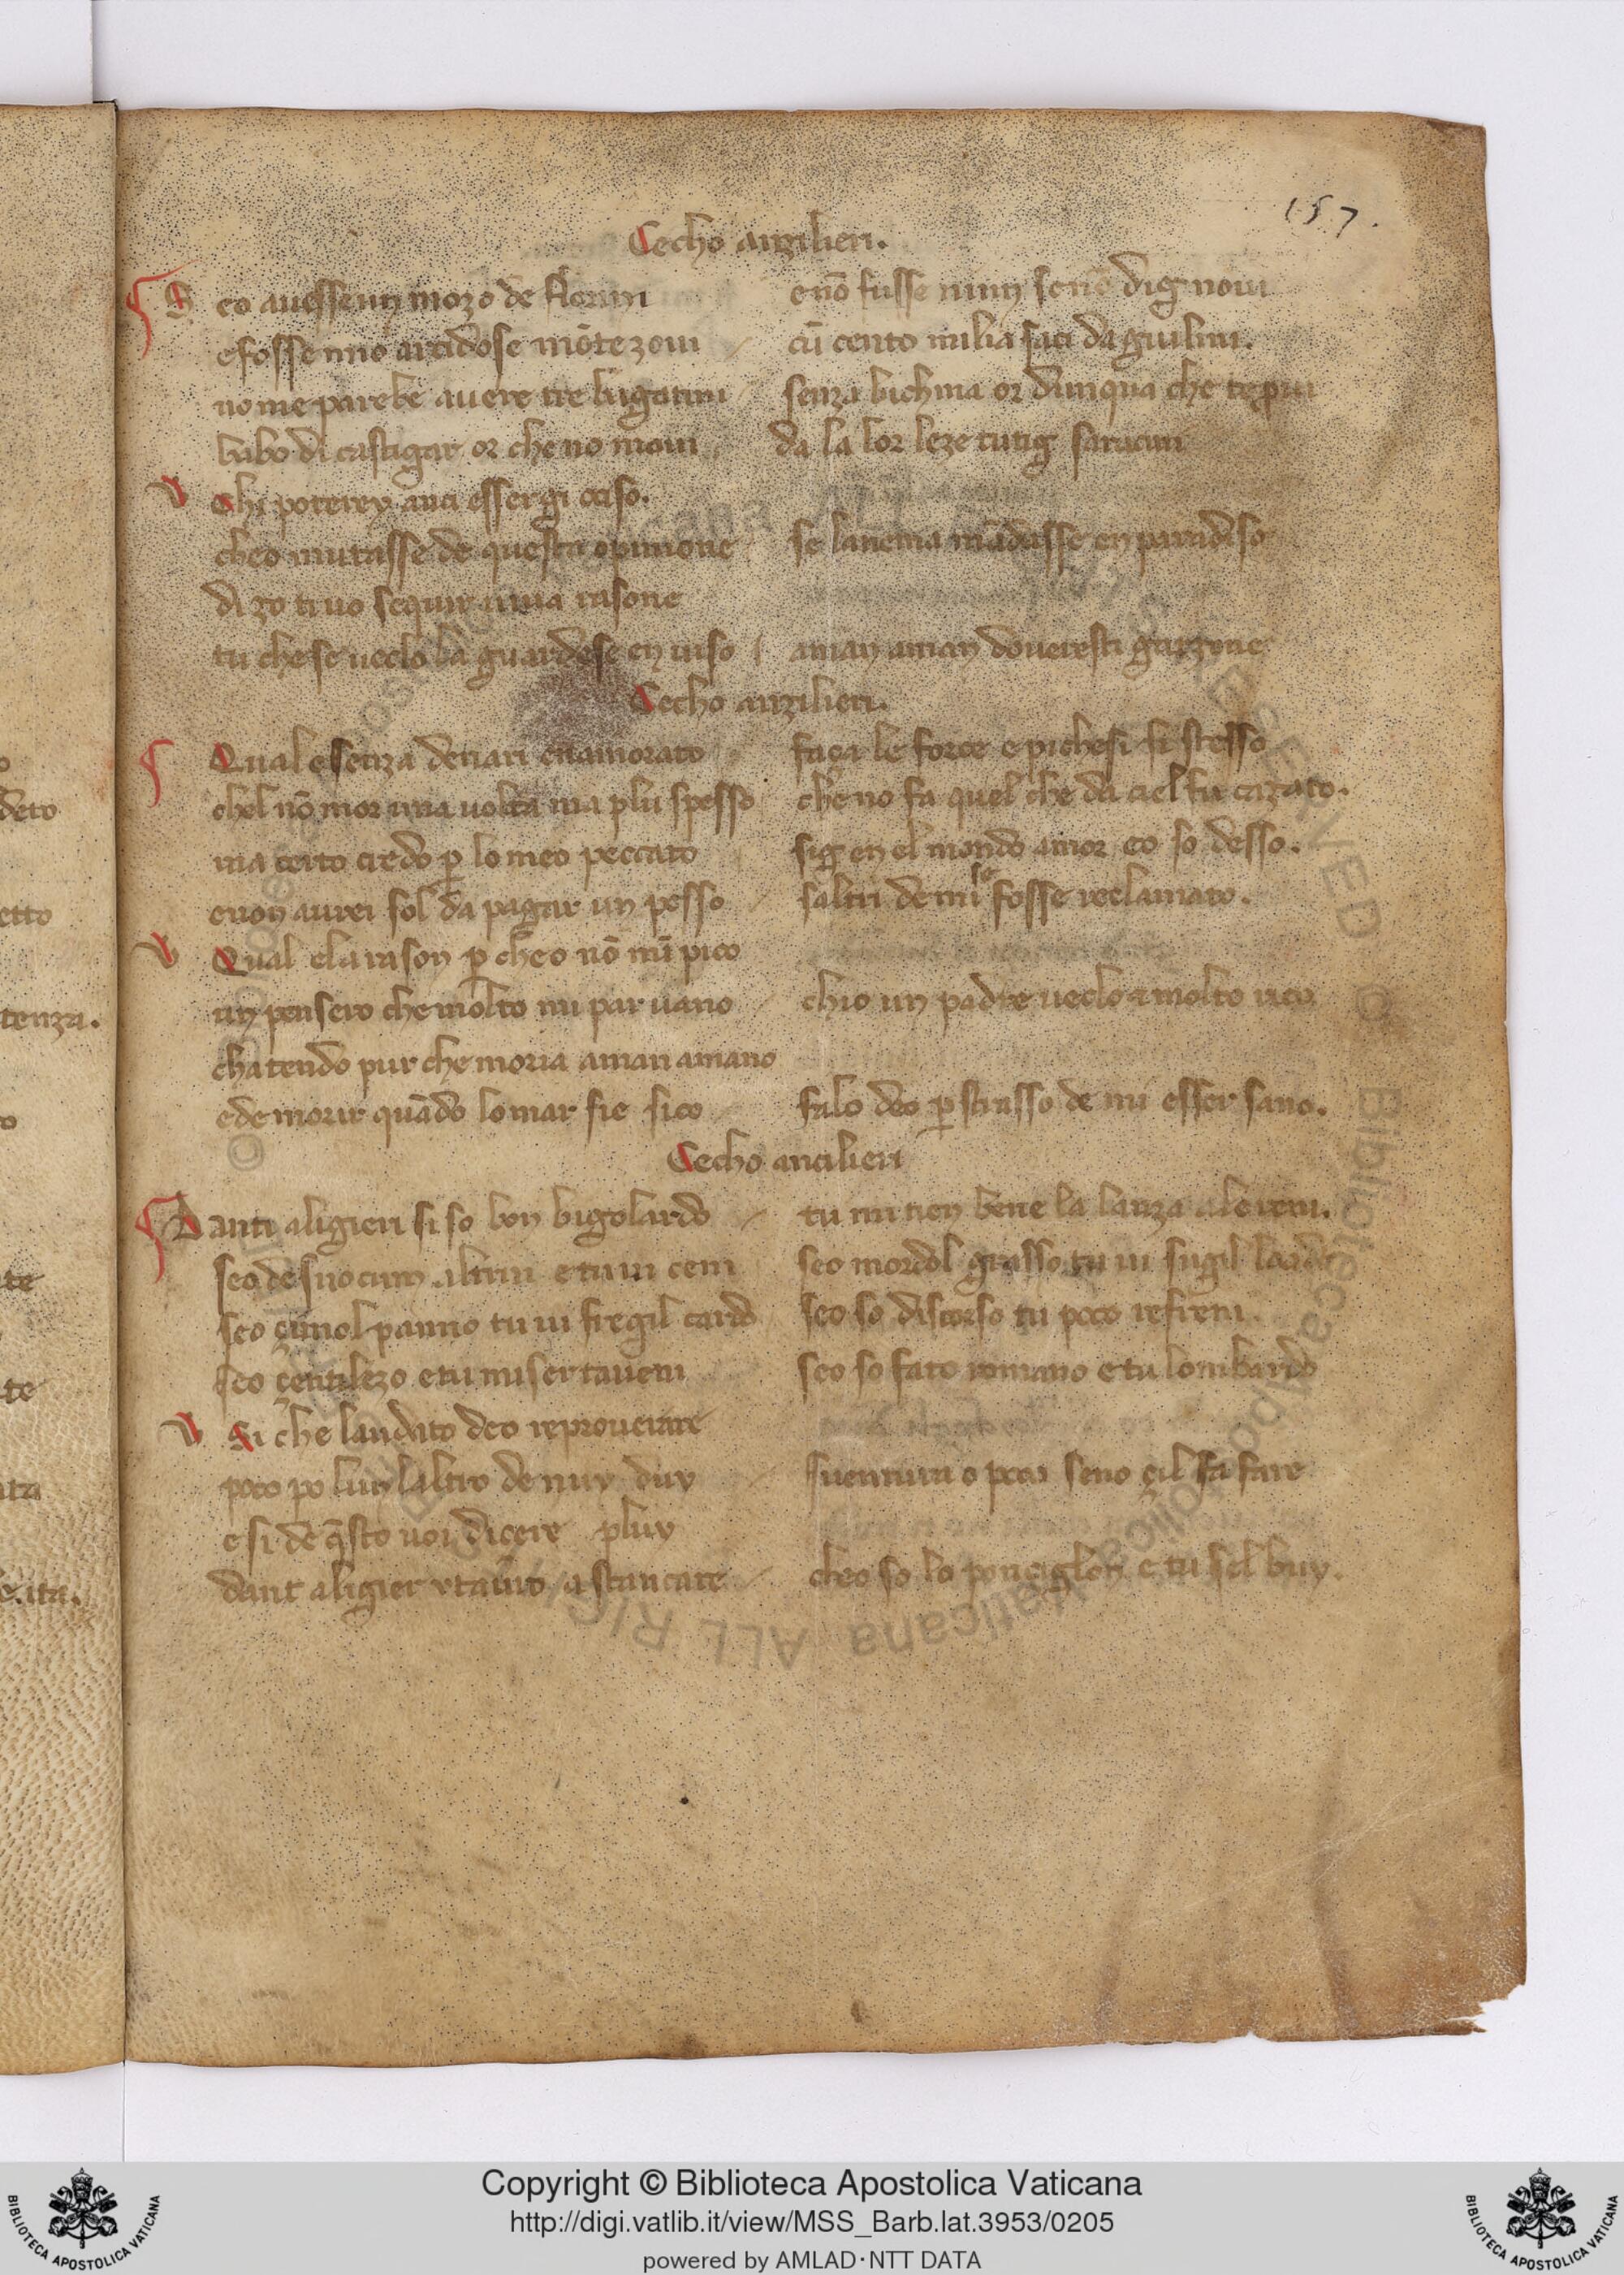 157.
Cecho anzilieri.
S eo avesse un mozo de fiorini enō fusse niun senō dig novi
e fosse mio arcidosē mōtezovi cū cento milia saci daguilini.
no me parebe avere tre bagatini senza bichina or dunqua che te provi
babo di castigar or che no movi da la lor leze tutig saracini
V chi poterey anci esser gi ociso.
cheo mutasse de questa opinione se lanema mādasse en paradiso
di zo ti vo sequir una rasone
tu che se veclo ba guardese en viso aman aman doveresti garzone
Cecho anzilieri.
Qual e senza denari enamorato faça le force e pichesi si stesso
chel nō mor una volta ma plu spesso che no fa quel che da ciel fu cazato.
ma certo credo p lo meo peccato sig en el mondo amor eo so desso.
e non avrei sol da pagar un pesso saltri de mi se fosse reclamato.
V Qual e la rason p cheo nō mī pico
un pensero che molto mi par vano chio un padre veclo e molto rico
chatendo pur che moria aman amano
ede morir quādo lo mar fie sico falo deo p strasso de mi esser sano.
Cecho ancilieri
Danti aligieri si so bon bigolardo tu mi tien bene la lanza a le reni.
seo desno cum altrui e tu vi ceni seo mordol grasso tu vi sugil lardo
seo çimol panno tu vi fregil cardo seo so discorso tu poco refreni.
seo çentilezo e tu miser taveni seo so fato romano e tu lombardo
V Si che laudato deo reproverare
poco po lun laltro de nuy duy sventura o poco seno çil fa fare
e si de q̄sto voi dicere pluy
dant aligier e taverò a stancare cheo so lo ponçiglon e tu sel buy.
Copyright © Biblioteca Apostolica Vaticana
http://digi.vatlib.it/view/MSS_Barb.lat.3953/0205
powered by AMLAD·NTT DATA
BIBLIOTECA APOSTOLICA VATICANA
BIBLIOTECA APOSTOLICA VATICANA